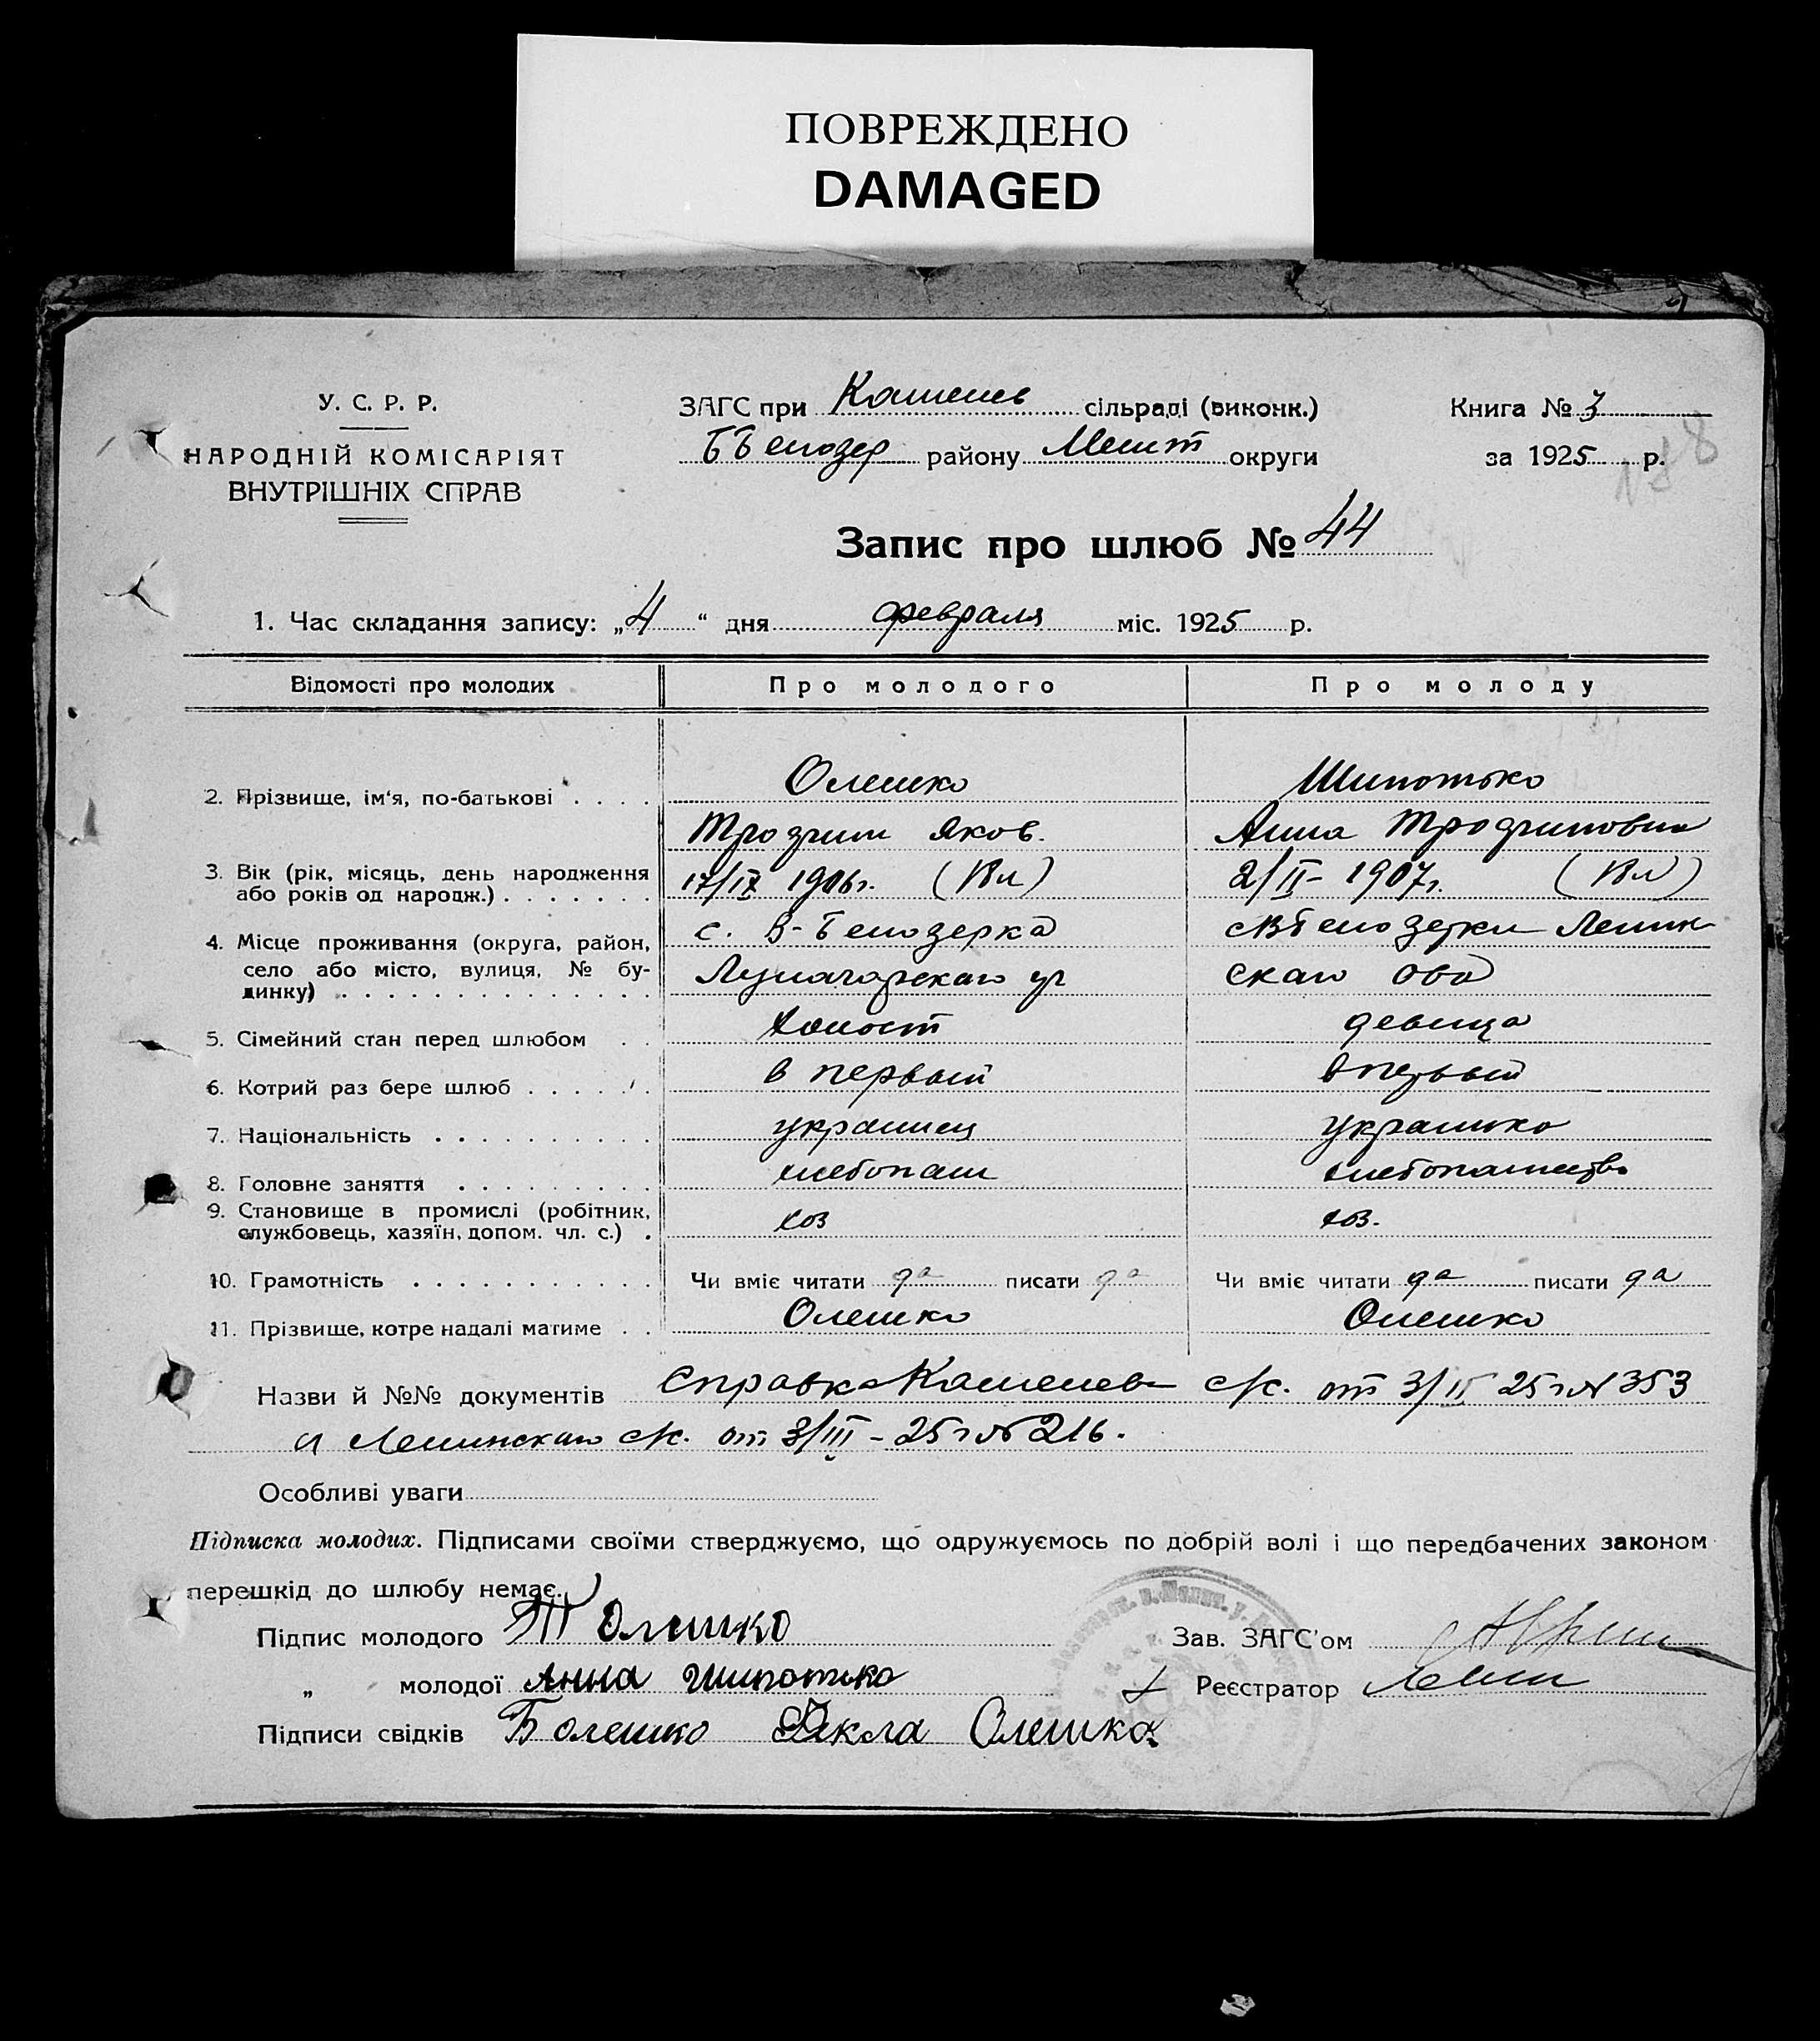 ПОВРЕЖДЕНО
DAMAGED
У. С. Р. Р.
НАРОДНІЙ КОМІСАРІЯТ
ВНУТРІШНІХ СПРАВ
ЗАГС при Каменев сільраді (виконк.)
ББелозер району Мелит округи
Книга № 3
за 1925 р.
Запис про шлюб № 44
1. Час складання запису: „4“ дня февраля міс. 1925 р.
Відомості про молодих Про молодого Про молоду
2. Прізвище, ім'я, по-батькові . . . . Олешко Шипотько
Трофим Яков. Анна Трофимовна
3. Вік (рік, місяць, день народження 17/IX 1906г. (18л) 2/II- 1907г. (18л)
або років од народж.) . . . . . . .
4. Місце проживання (округа, район, с. В-Белозерка сВБелозерки Ленин-
село або місто, вулиця, № бу- скаго обв
динку) . . . . . . . . . . . . . .
5. Сімейний стан перед шлюбом . . холост девица
6. Котрий раз бере шлюб . . . . . . в первый впервый
7. Національність . . . . . . . . . . украинец украинка
8. Головне заняття . . . . . . . . . хлебопаш хлебопашество
9. Становище в промислі (робітник, хоз хоз.
службовець, хазяїн, допом. чл. с.) .
10. Грамотність . . . . . . . . . . . Чи вміє читати да писати да Чи вміє читати да писати да
11. Прізвище, котре надалі матиме . . Олешко Олешко
Назви й №№ документів Справка Каменев с/с. от 3/II 25г № 353
и Ленинскаго с/с. от 3/III - 25г № 216.
Особливі уваги
Підписка молодих. Підписами своїми стверджуємо, що одружуємось по добрій волі і що передбачених законом
перешкід до шлюбу немає.
Підпис молодого Т Олешко
Зав. ЗАГС'ом
„ молодої Анна Шипотько
Реєстратор
Підписи свідків Б олешко Фекла Олешко